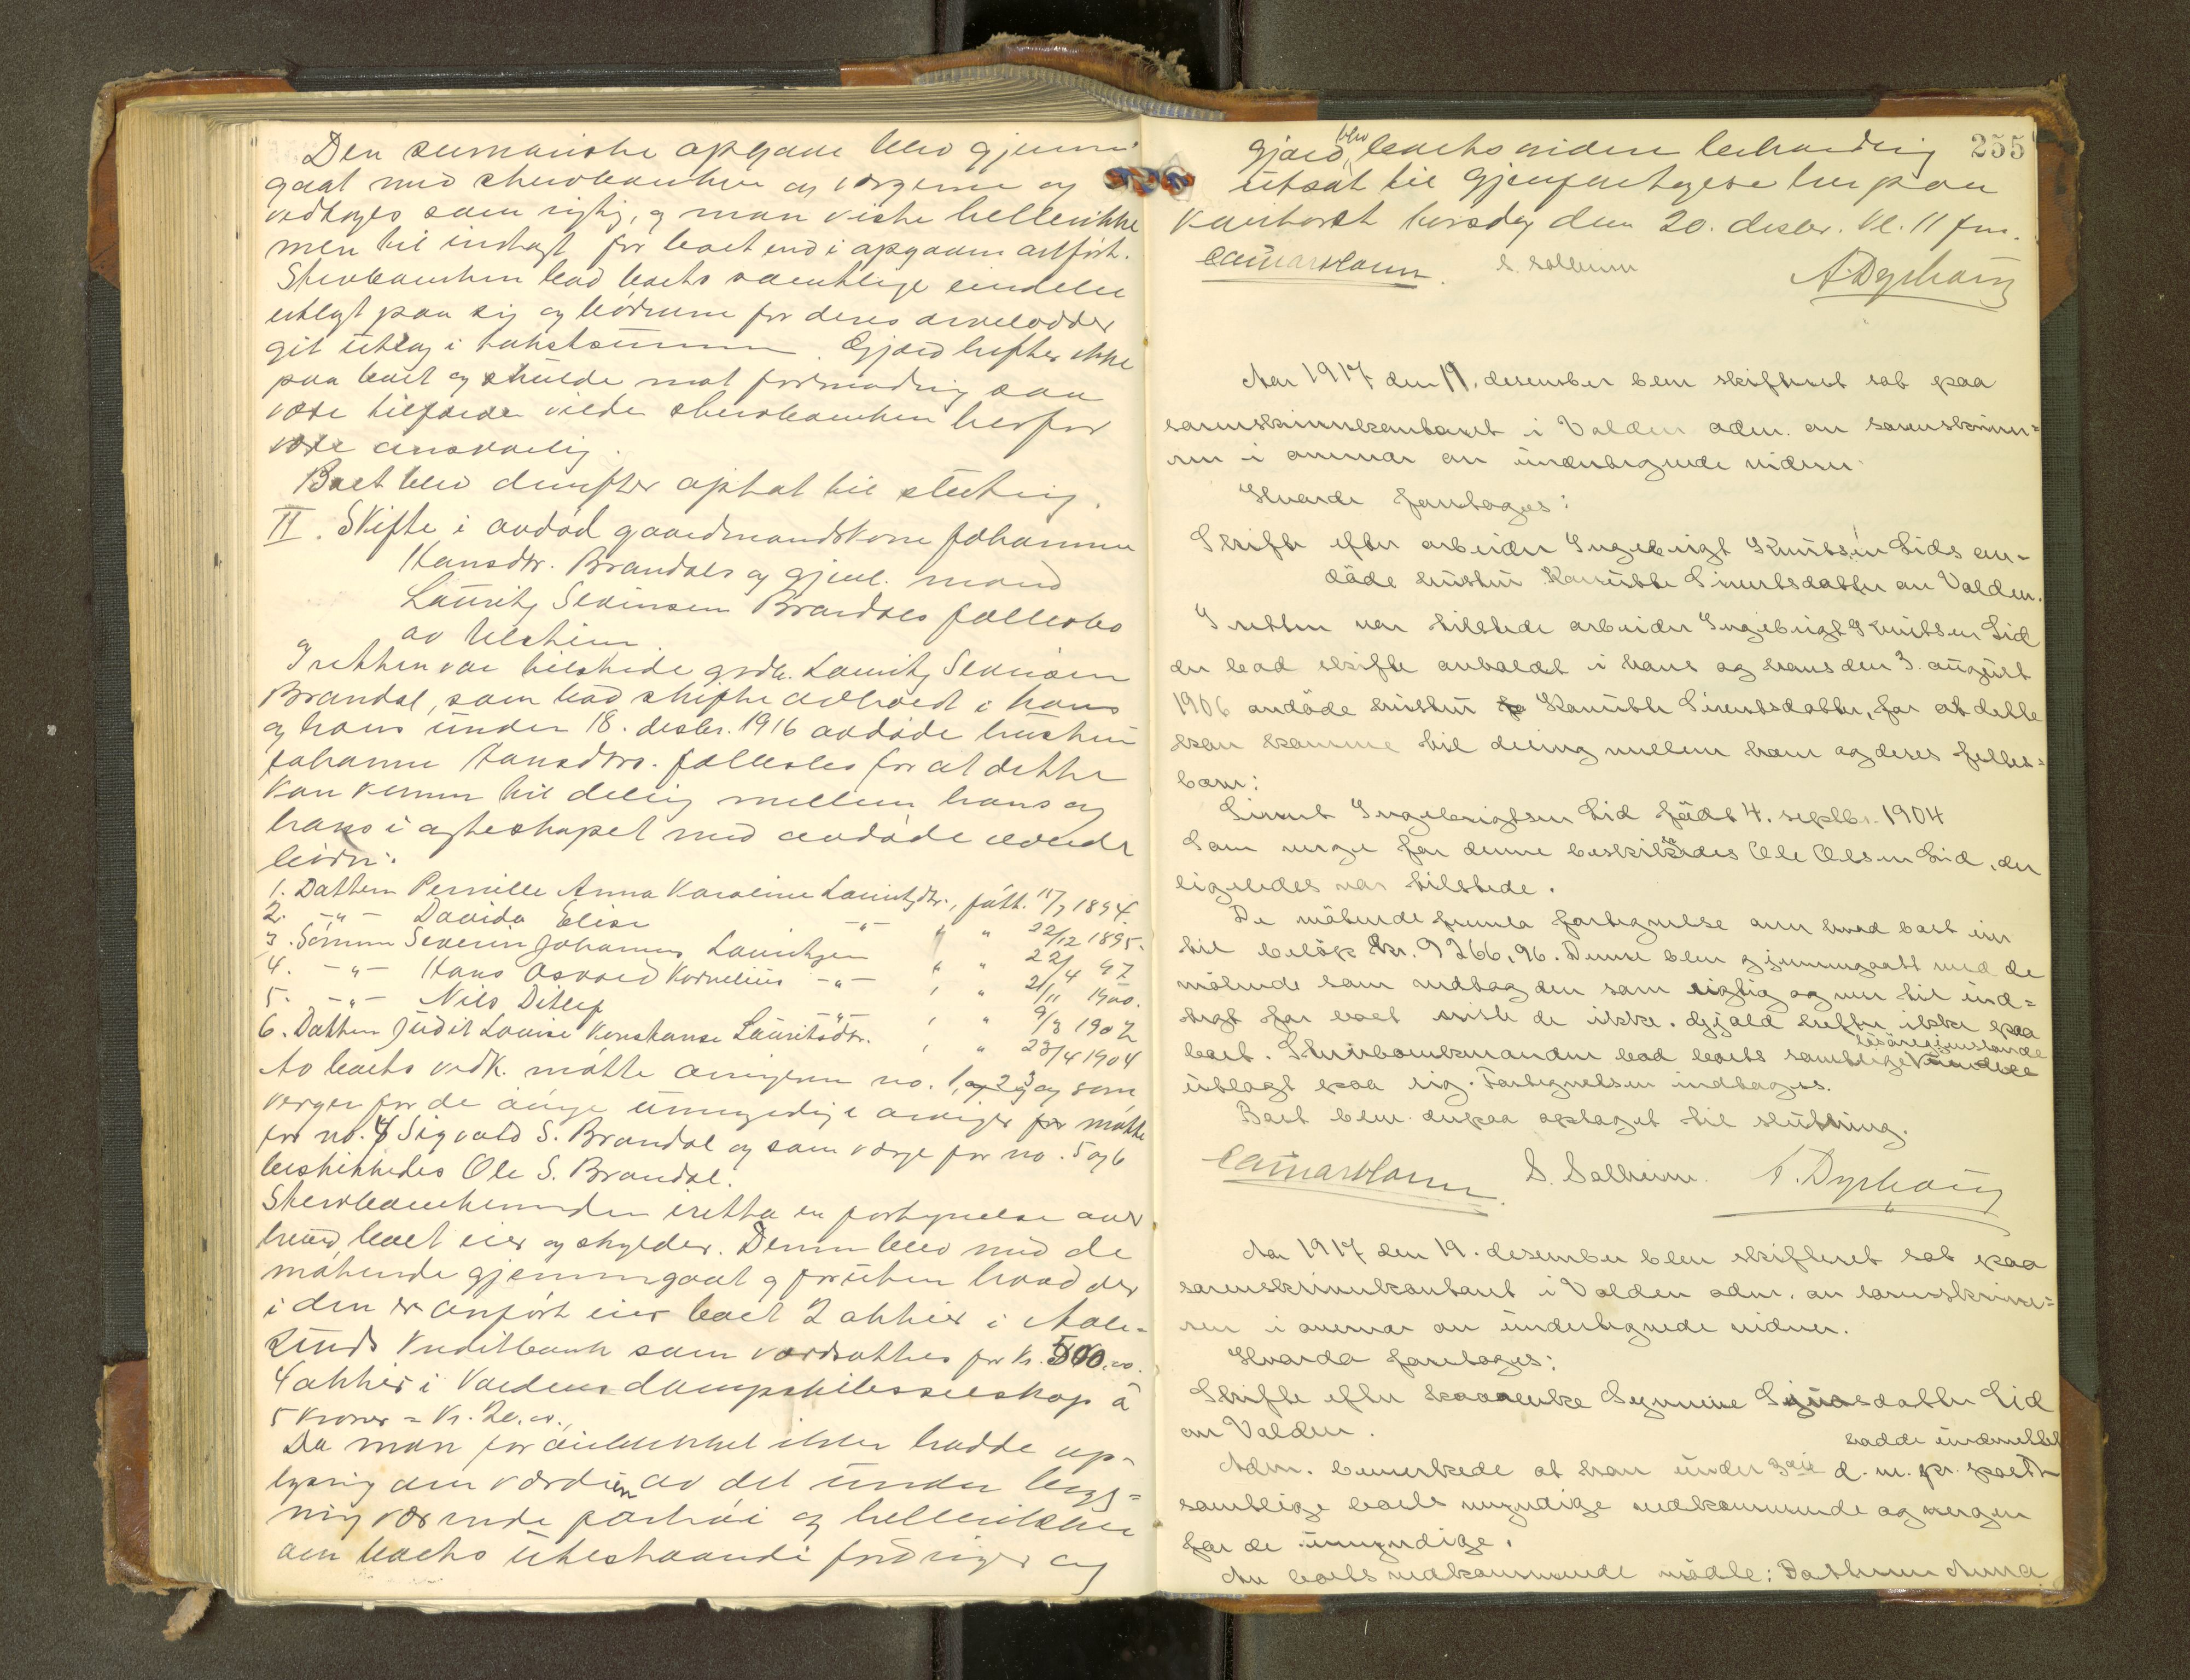 Den sumariske opgave blev gjennem-
gaat med skevbanken og vergerne og
vedtoges som rigtig, og man viste hellerikke
mer til indtægt for boet end i opgaven anført.
bad boets samtlige eiendeler
utlagt paa sig og børnene for deres arvelodder
git utlæg i takstsummen. Gjæld hefter ikke
paa boet og skulde mot formodning saa
være tilfælde vilde herfor
være ansvarlig.
Boet blev derefter optat til slutning.
II. Skifte i avdød gaardmandskone Johanne
Hansdtr. Brandals og gjenl. mand
Lauritz Severinsen Brandals fællesbo
av Ulstein
I retten var tilstede grdb. Lauritz Severinsen
Brandal, som bad skifte avholdt i hans
og hans under 18. desbr. 1916 avdøde hustru
Johanne Hansdtrs. fællesbo for at dette
kan komme til deling mellem hans og
hans i egteskapet med avdøde avlede
børn:
1. Datteren Pernille Anna Karoline Lauritzdtr., født 11/7 1894.
2. -"- Davida Elise -"- " " 22/12 1895.
3. Sønnen Severin Johannes Lauritzsen " " 22/4 97
4. -"- Hans Osvald Kornelius -"- " " 21/11 1900.
5. -"- Nils Ditlef -"- " " 9/3 1902
6. Datteren Judit Louise Konstanse Lauritsdtr. " " 23/4 1904
Av boets vedk. møtte arvingerne no. 1, 2 og 3 og som
verger for de øvrige umyndige arvinger møtte
for no. 4 Sigvald S. Brandal og som verge for no. 5 og 6
beskikkedes Ole S. Brandal.
iretta en fortegnelse over
hvad boet eier og skylder. Denne blev med de
møtende gjennemgaat og foruten hvad der
i den er anført eier boet 2 aktier i Aale-
sunds Kreditbank som værdsattes for kr. 500.00.
4 aktier i Voldens dampskibsselskap à
5 kroner = kr. 20.00.
Da man for øieblikket ikke hadde op-
lysning om værdien av det under bygg-
ning værende og hellerikke
om boets utestaaende fordringer og
255
gjæld, blev boets videre behandling
utsat til gjenforetagelse her paa
kontoret torsdag den 20. desbr. kl. 11 fm.
S. Solheim
A. Dyrhaug
Aar 1917 den 19. desember blev skifteret sat paa
sorenskriverkontoret i Volden adm. av sorenskrive-
ren i overvær av undertegnede vidner.
Hvorda foretoges:
Skifte efter arbeider Ingebrigt Knutsen Lids av-
døde hustru Kanutte Sivertsdatter av Volden.
I retten var tilstede arbeider Ingebrigt Knutsen Lid
der bad skifte avholdt i hans og hans den 3. august
1906 avdøde hustru Kanutte Sivertsdatter, for at dette
kan komme til deling mellem ham og deres felles-
barn:
Sivert Ingebrigtsen Lid født 4. septbr. 1904
Som verge for denne beskikkedes Ole Olsen Lid, der
ligeledes var tilstede.
De møtende fremla fortegnelse over hvad boet eier
til beløp kr. 9266,96. Denne blev gjennemgaatt med de
møtende som vedtog den som rigtig og mer til ind-
tegt for boet viste de ikke. Gjæld hefter ikke paa
boet. bad boets samtlige løsøregjenstande
utlagt paa sig. Fortegnelsen indtages.
Boet blev derpaa optaget til slutning.
S. Solheim. A. Dyrhaug
Aar 1917 den 19. desember blev skifteret sat paa
sorenskriverkontoret i Volden adm. av sorenskrive-
ren i overvær av undertegnede vidner.
Hvorda foretoges:
Skifte efter Lid
av Volden.
Adm. bemerkede at han under d. m. pr. post hadde underrettet
samtlige boets myndige vedkommende og vergen
for de umyndige.
Av boets vedkommende mødte: Datteren Anna